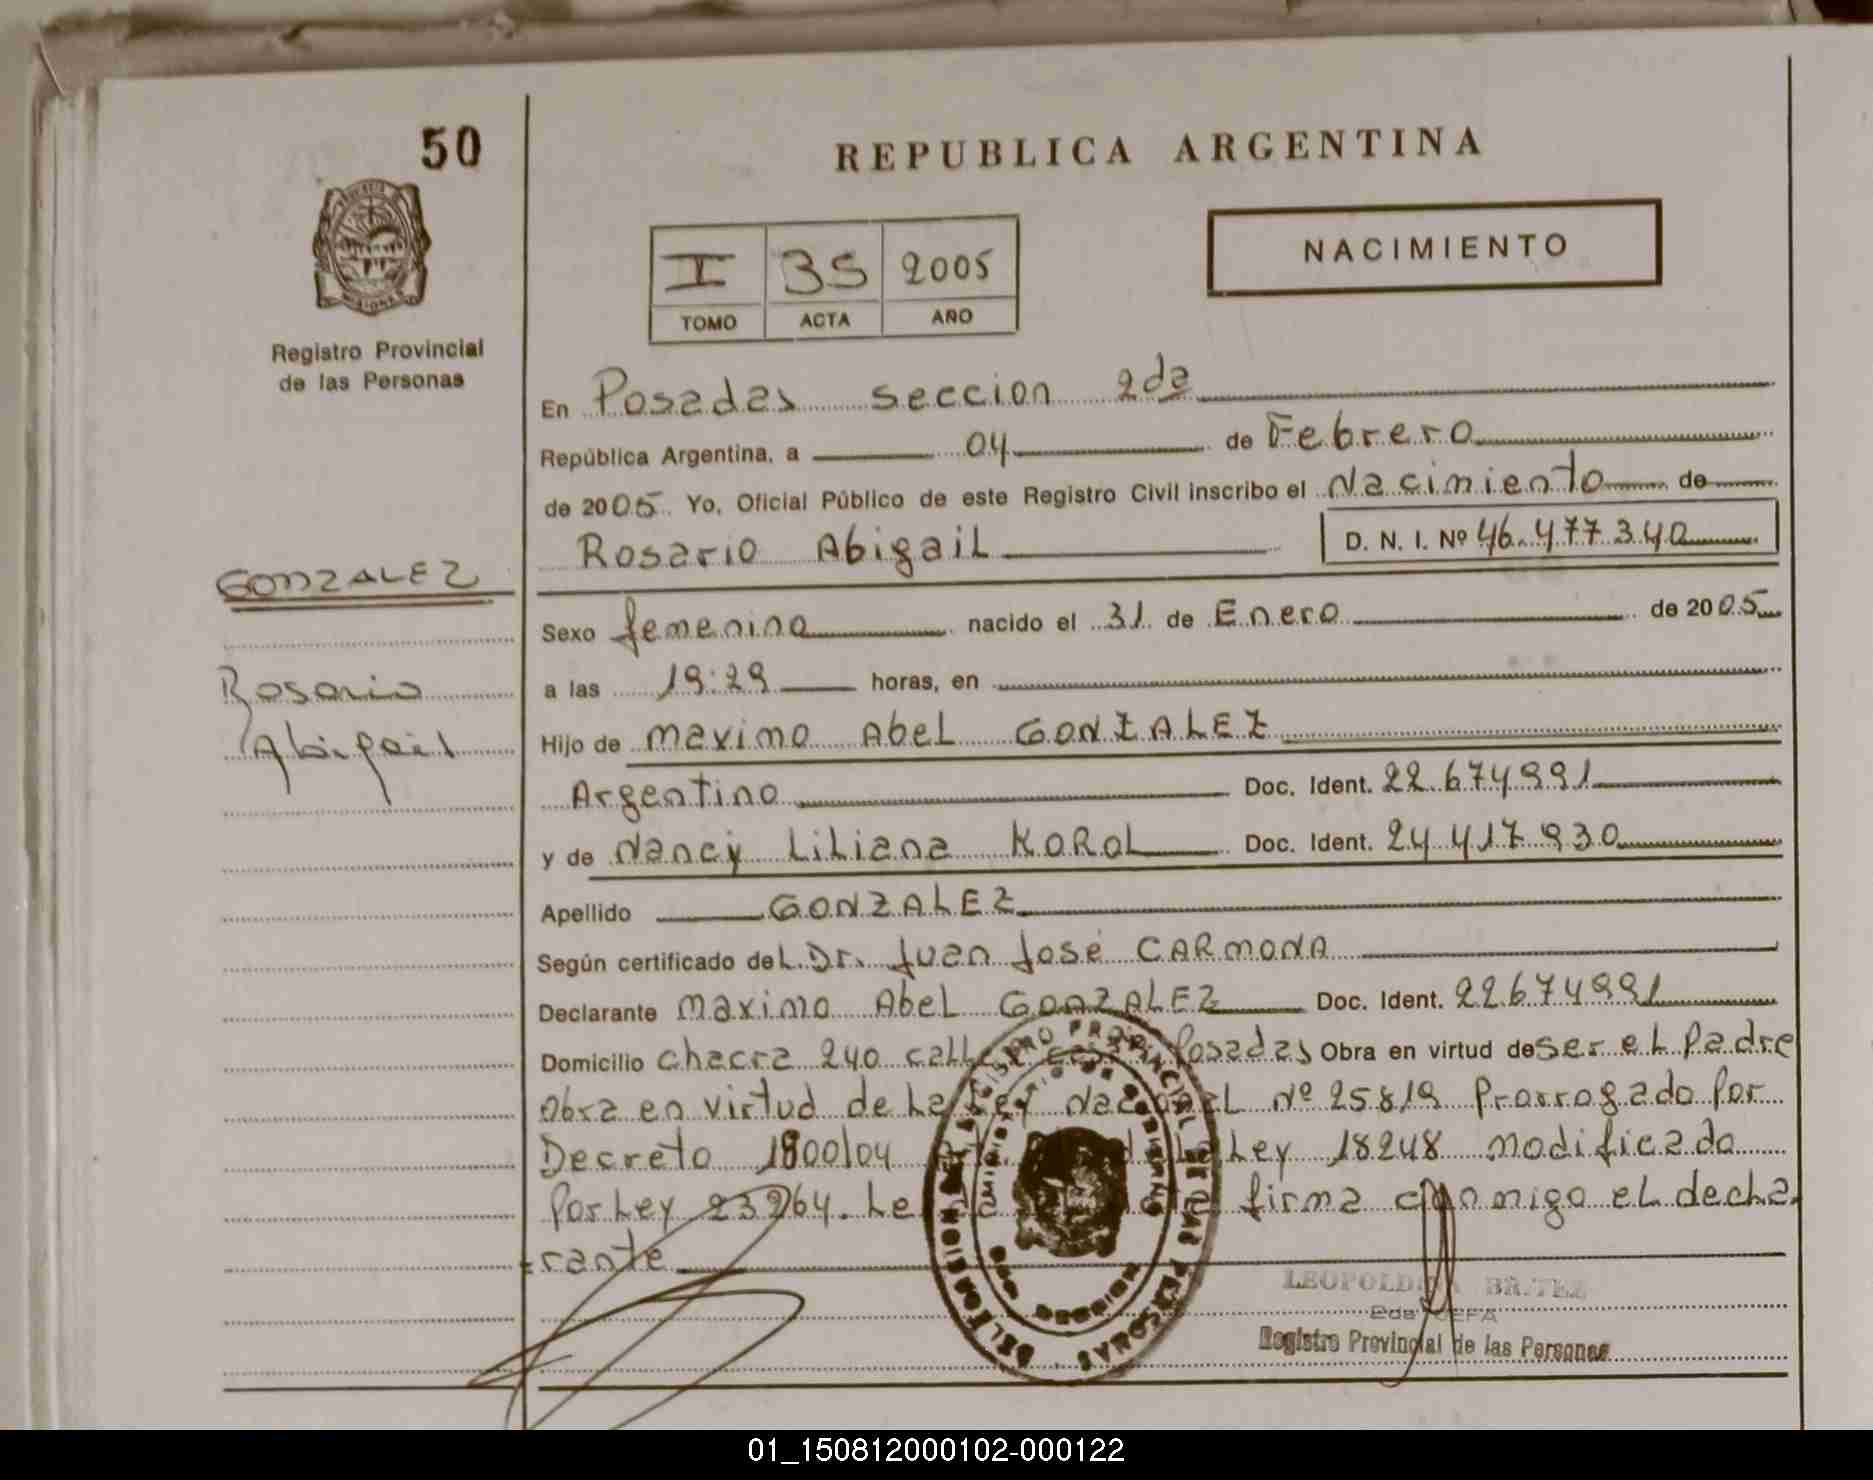 50
REPUBLICA ARGENTINA
I 35 2005
TOMO ACTA AÑO
NACIMIENTO
Registro Provincial
de las Personas
En Posadas seccion 2da
República Argentina, a 04 de Febrero
de 2005. Yo, Oficial Público de este Registro Civil inscribo el Nacimiento de
Rosario Abigail D. N. I. Nº 46.477.340
GONZALEZ
Sexo femenino nacido el 31 de Enero de 2005
Rosario
a las 19:29 horas, en
Abigail
Hijo de maximo Abel GONZALEZ
Argentino Doc. Ident. 22.674.991
y de Nancy Liliana KOROL Doc. Ident. 24.417.930
Apellido GONZALEZ
Según certificado del Dr. Juan José CARMONA
Declarante maximo Abel GONZALEZ Doc. Ident. 22674991
Domicilio chacra 240 calle Posadas Obra en virtud de ser el Padre
Obra en virtud de la Ley Nacional Nº 25819 Prorrogado por
Decreto 1800/04 La Ley 18248 modificado
Por Ley 23264. Le firma conmigo el decla
=rante
REGISTRO PROVINCIAL DE LAS PERSONAS
MINISTERIO DE GOBIERNO
MISIONES
DELEGACION
LEOPOLDINA BRITEZ
2da JEFA
Registro Provincial de las Personas
01_150812000102-000122